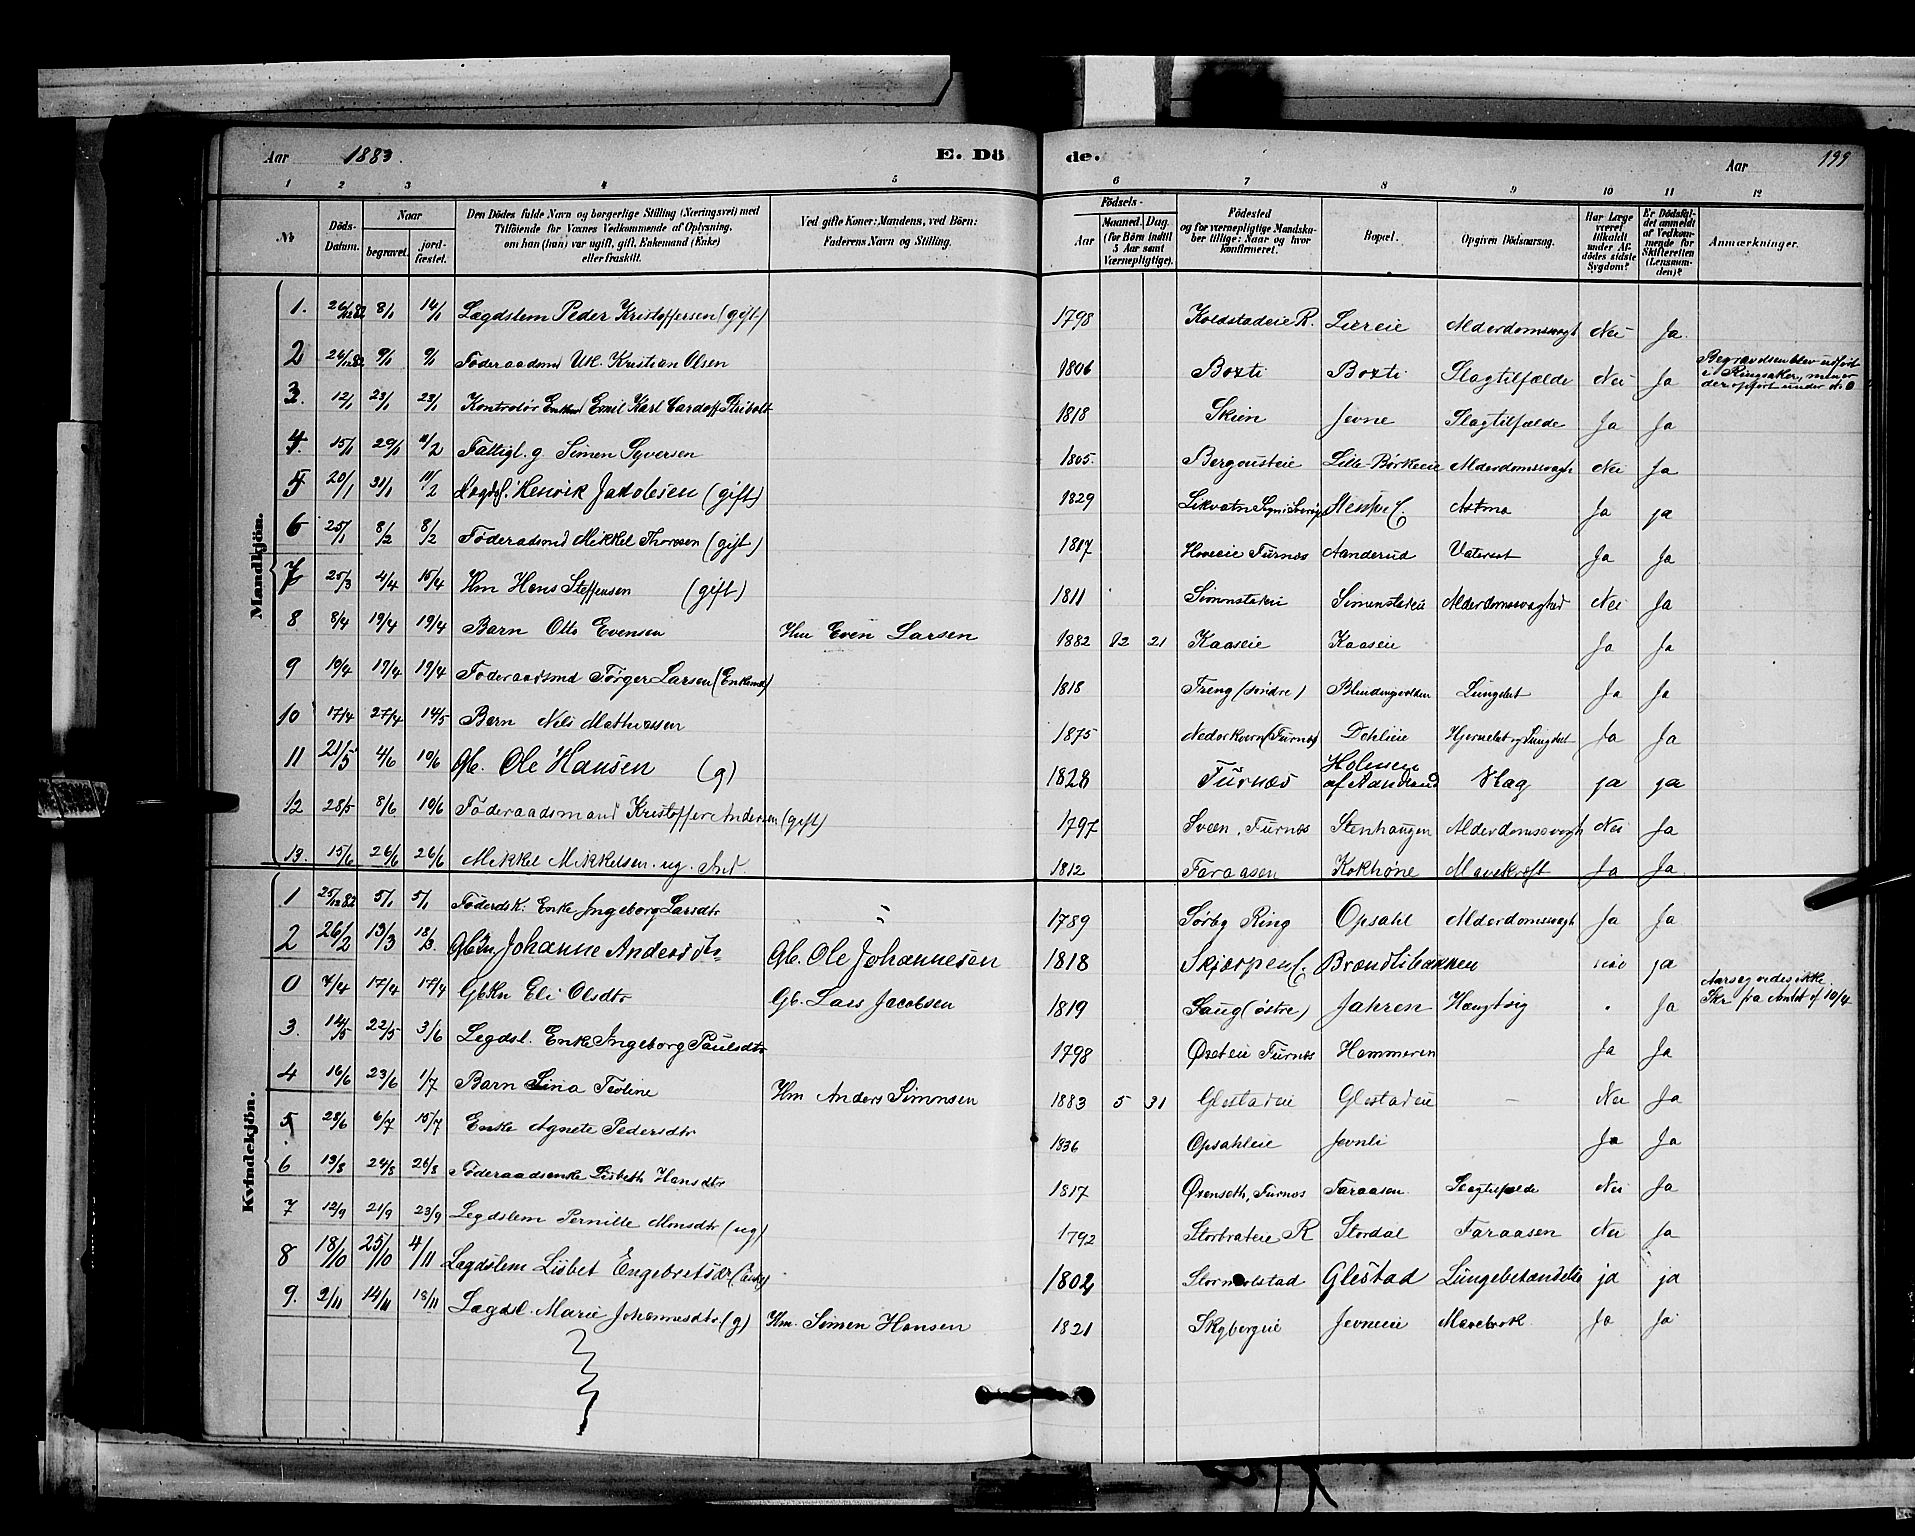 Aar 1883. E. Dö de. Aar 199
1 2 3 4 5 6 7 8 9 10 11 12
№ Döds-Datum. Naar begravet. jord-fæstet. Den Dödes fulde Navn og borgerlige Stilling (Næringsvei) med Tilföiende for Voxnes Vedkommende af Oplysning, om han (hun) var ugift, gift, Enkemand (Enke) eller fraskilt. Ved gifte Koner: Mandens, ved Börn: Faderens Navn og Stilling. Födsels- Aar Maaned. Dag. (for Börn indtil 5 Aar samt Værnepligtige). Födested og for værnepligtige Mandska-ber tillige: Naar og hvor konfirmeret. Bopæl. Opgiven Dödsaarsag. Har Læge været tilkaldt under Af-dödes sidste Sygdom? Er Dödsfal-det anmeldt af Vedkom-mende for Skifteretten (Lensman-den)? Anmærkninger.
Mandkjön.
1. 26/12 82 8/1 14/1 Lægdslem Peder Kristoffersen (gift) 1798 Koldstadeie R. Liereie Alderdomsvagh Nei Ja.
2 26/12 82 9/1 9/1 Föderaadsmd Kristian Olsen 1806 Boxti Boxti Slagtilfælde Nei Ja Begravelsen blev udført i Ringsaker, men er der opført under № 0
3. 12/1 23/1 23/1 Kontrolör Enkm Emil Karl 1818 Skien Jevne Slagtilfælde Ja Ja
4. 15/1 29/1 11/2 Fattigl. g Simen Syversen 1805. Bergousteie Lille-Börkeeie Alderdomsvagh Nei Ja
5 20/1 31/1 11/2 Lægdsl. Henrik Jakobsen (gift) 1829 Astma Ja ja
6 25/1 8/2 8/2 Föderaadsmd Mikkel Thoresen (gift) 1817 Hoveie Furnæs Aanderud Vatersot Ja Ja
7 25/3 4/4 15/4 Hm Hans Steffensen (gift) 1811 Simenstadeie Simenstadeie Alderdomsvaghed Nei Ja
8 8/4 19/4 19/4 Barn Otto Evensen Hm Even Larsen 1882 12 21 Kaaseie Kaaseie Ja Ja
9 10/4 17/4 19/4 Föderaadsmd Törger Larsen (Enkemd) 1818 Freng (söndre) Blindingsvolden Lungebet Ja Ja
10 17/4 27/4 14/5 Barn Nils Mathiassen 1875 Nederkvern (Furnæs) Dehlieie Hjernebet og Lungebet Ja Ja
11 21/5 4/6 10/6 Gb. Ole Hansen (g) 1828 Furnæs Holmen af Aanderud Slag ja ja
12 28/5 8/6 10/6 Föderaadsmand Kristoffer Andersen (gift) 1797 Sveen, Furnæs Stenhaugen Alderdomssvagh Nei Ja
13. 15/6 26/6 26/6 Mikkel Mikkelsen. ug. Ind. 1812 Faraasen Kokhöne Mavekræft Ja Ja.
Kvindekjön.
1 25/12 82 5/1 5/1 Föderdsk. Enke Ingeborg Larsdtr " 1789 Sörby Ring Opsahl Alderdomsvagh Ja Ja
2 26/2 13/3 18/3 Gbkn Johanne Andersdtr Gb. Ole Johannesen 1818 Skjærpen L. Brændlibakken nei ja
0 7/4 17/4 17/4 Gbkn Eli Olsdtr Gb. Lars Jacobsen 1819 Saug (östre) Jahren Hængt sig " Ja Aarsag vides ikke. Skr fra Amtet af 10/4
3. 14/5 22/5 3/6 Legdsl. Enke Ingeborg Paulsdtr 1798 Öxeteie Furnæs Hammeren Ja Ja
4 16/6 23/6 1/7 Barn Lina Teoline Hm Anders Simensen 1883 5 31 Glestadeie Glestadeie - Nei Ja
5 28/6 6/7 15/7 Enke Agnete Pedersdtr 1836 Opsahleie Jevnli Ja Ja
6 13/8 24/8 26/8 Föderaadsenke Lisbeth Hansdtr 1817 Öxenseth, Furnæs Faraasen Slagtilfælde Nei Ja
7 12/9 21/9 23/9 Legdslem Pernille Monsdtr (ug) 1792 Storbrateie R Stordal Faraasen Nei Ja
8 18/10 25/10 4/11 Lægdslem Lisbet Engebretsdr (Enke) 1802 Glestad Lungebetændelse ja ja
9. 2/11 14/11 18/11 Lægdsl. Marie Johannesdtr (g) Hm. Simen Hansen 1821 Skybergeie Jevneeie Mavebrok Ja Ja